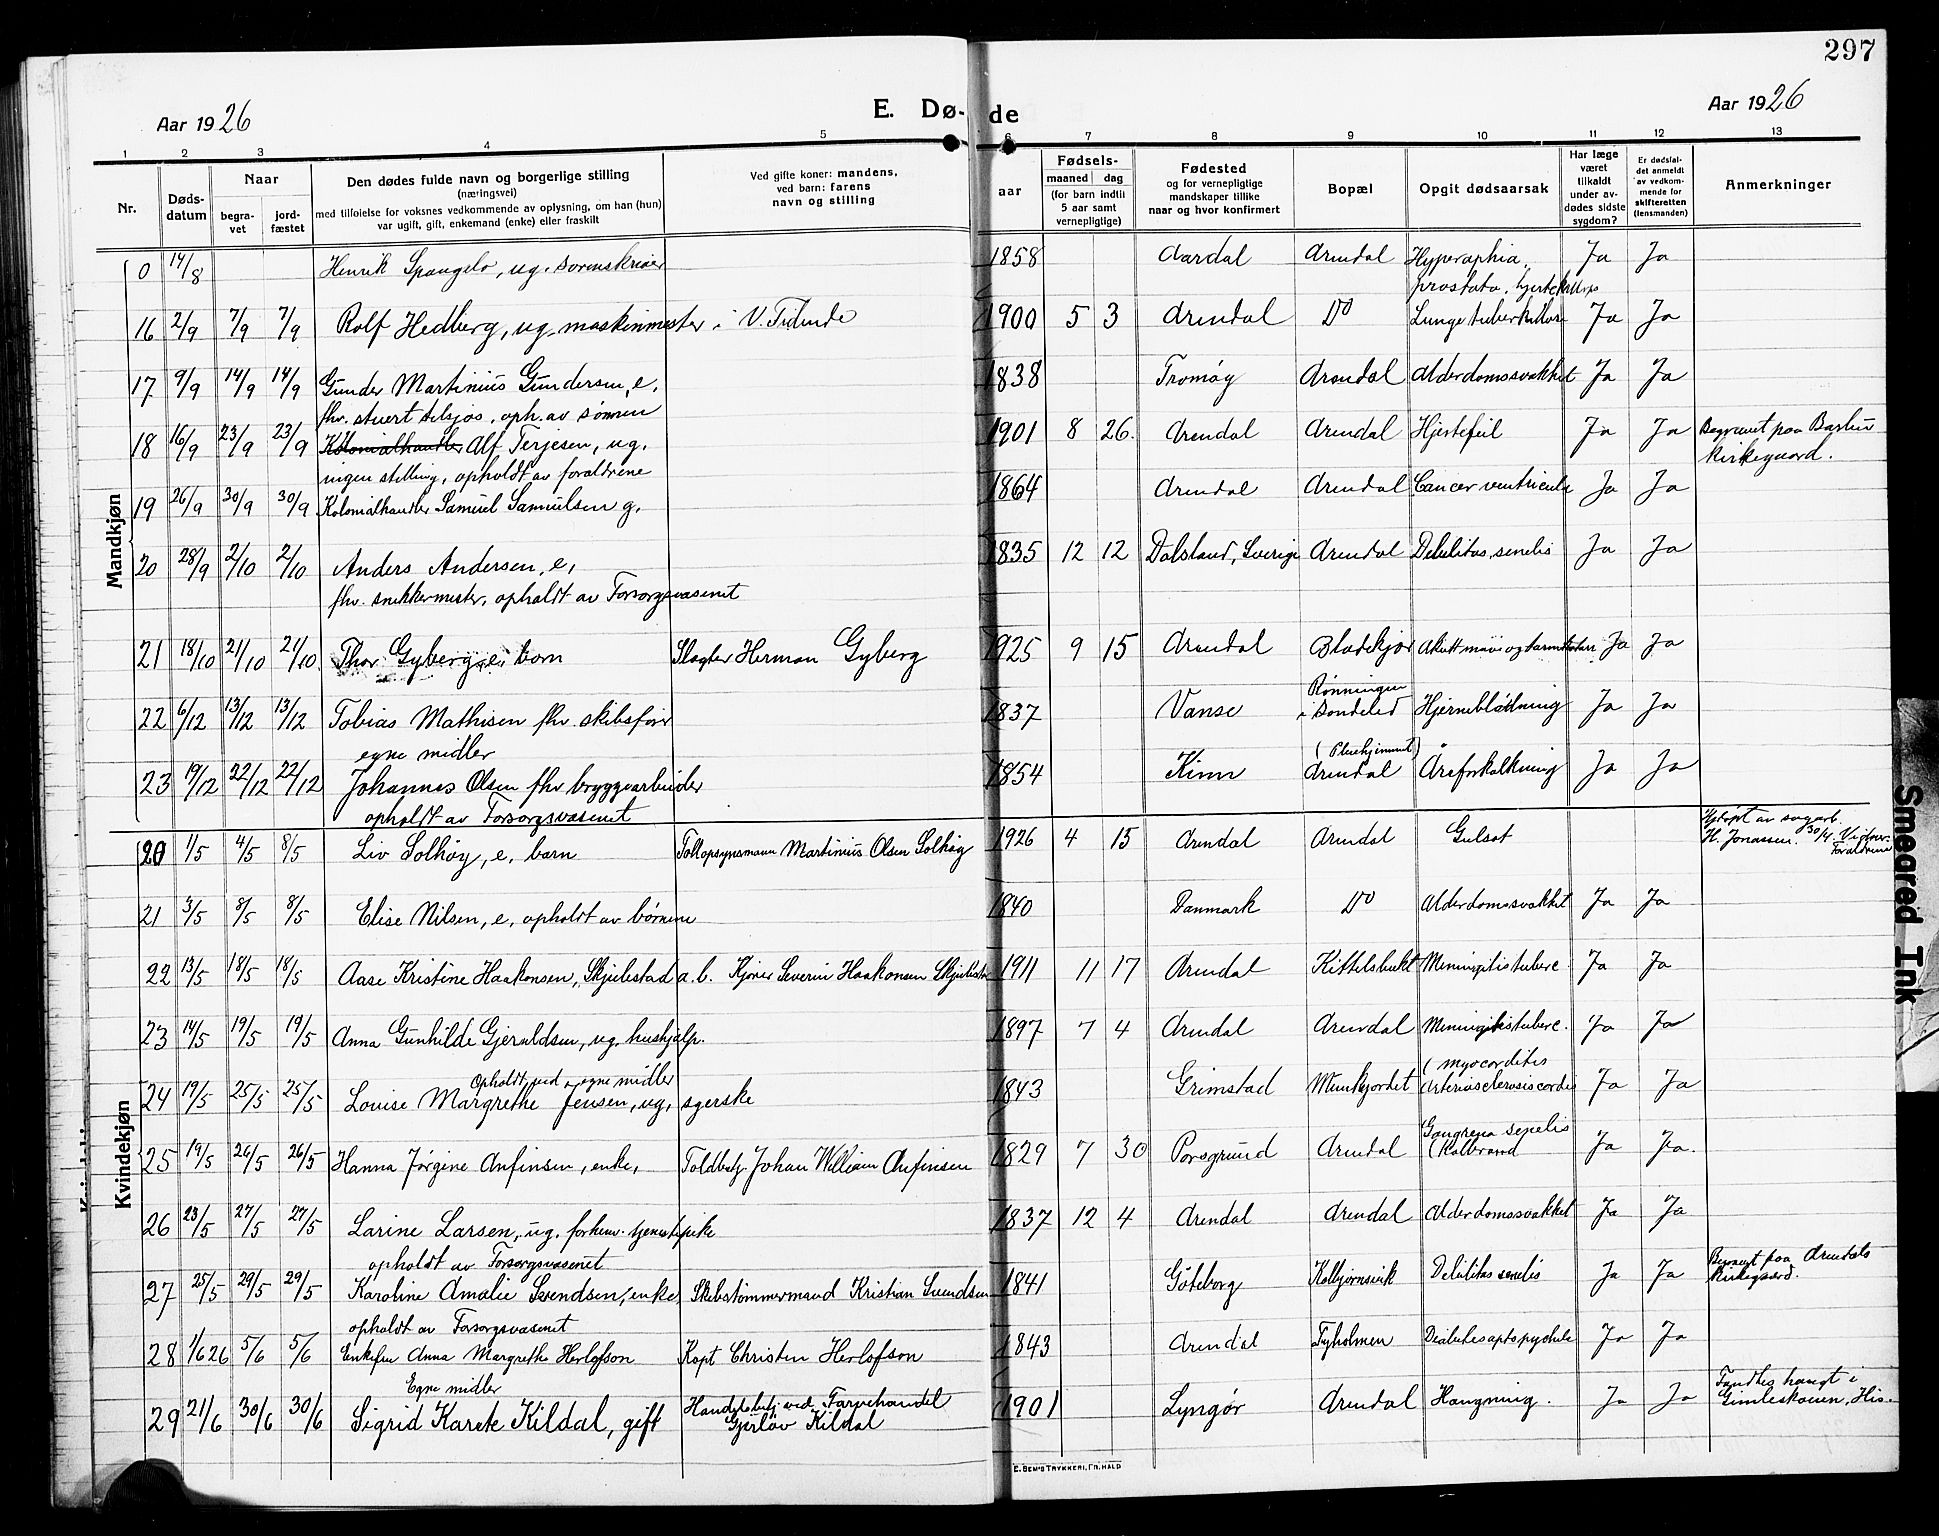 297
Aar 1926
E. Dø-
de
Aar 1926
1 2 3 4 5 6 7 8 9 10 11 12 13
Nr.
Døds-
datum
Naar
begra-
vet
jord-
fæstet
Den dødes fulde navn og borgerlige stilling
(næringsvei)
med tilføielse for voksnes vedkommende av oplysning, om han (hun)
var ugift, gift, enkemand (enke) eller fraskilt
Ved gifte koner: mandens,
ved barn: farens
navn og stilling
aar
Fødsels-
maaned dag
(for barn indtil
5 aar samt
vernepligtige)
Fødested
og for vernepligtige
mandskaper tillike
naar og hvor konfirmert
Bopæl
Opgit dødsaarsak
Har læge
været
tilkaldt
under av-
dødes sidste
sygdom?
Er dødsfal-
det anmeldt
av vedkom-
mende for
skifteretten
(lensmanden)
Anmerkninger
Mandkjøn
0 14/8 Henrik Spangelo, ug. sorenskriver 1858 Aardal Arendal Hyperaphia Ja Ja
prostata
16 2/9 7/9 7/9 Rolf Hedberg, ug. maskinmester i V. Tidende 1900 5 3 Arendal Do Lungetuberkulose Ja Ja
17 9/9 14/9 14/9 Gunder Martinius Gundersen, e. 1838 Tromøy Arendal Alderdomssvakket Ja Ja
fhv. stuert tilsjøs, oph. av sønnen
18 16/9 23/9 23/9 Kolonialhandler Alf Terjesen, ug. 1901 8 26. Arendal Arendal Hjertefeil Ja Ja Begravet paa Barbu
ingen stilling, opholdt av forældrene kirkegaard.
19 26/9 30/9 30/9 Kolonialhandler Samuel Samuelsen g. 1864 Arendal Arendal Cancer ventriculi Ja Ja
20 28/9 2/10 2/10 Anders Andersen, e. 1835 12 12 Dalsland, Sverige Arendal Debilitas senilis Ja Ja
fhv. snekkermester, opholdt av Forsorgsvæsenet
21 18/10 21/10 21/10. Thor Gyberg, e. barn Slagter Herman Gyberg 1925 9 15 Arendal Blødekjær Akutt mave og tarmkatarr Ja Ja
22 6/12 13/12 13/12 Tobias Mathisen fhv. skibsfører 1837 Vanse Rønningen
i Søndeled Hjerneblødning Ja Ja
egne midler
23 19/12 22/12 22/12 Johannes Olsen fhv bryggearbeider 1854 Kinn (Pleiehjemmet)
Arendal Åreforkalkning Ja Ja
opholdt av Forsorgsvæsenet
Kvindekjøn
20 1/5 4/5 8/5 Liv Solhøy, e. barn Toldopsynsmann Martinius Olsen Solhøy 1926 4 15 Arendal Arendal Gulsot Hjdøpt av
H. Jonassen. 30/4. Vidner:
Forældrene
21 3/5 8/5 8/5 Elise Nilsen, e, opholdt av børnene 1840 Danmark Do Alderdomssvakket Ja Ja
22 13/5 18/5 18/5 Aase Kristine Haakonsen, Skjulestad a.b. Severin Haakonsen 1911 11 17 Arendal Kittelsbukt Meningitis tuberc Ja Ja
23 14/5 19/5 19/5 Anna Gunhilde Gjeruldsen, ug. hushjelp. 1897 7 4 Arendal Arendal Meningitis tuberc. Ja Ja
Opholdt ved egne midler
24 19/5 25/5 25/5 Louise Margrethe Jensen, ug, syerske 1843 Grimstad Munkejordet (myocarditis
Arteriosclerosis cordis Ja Ja
25 19/5 26/5 26/5 Hanna Jørgine Anfinsen, enke, Toldbetj Johan William Anfinsen 1829 7 30 Porsgrund Arendal Gangrena senilis
(Kolbrand Ja Ja.
26 23/5 27/5 27/5 Larine Larsen, ug. forhenv. tjenestepike 1837 12 4 Arendal Arendal Alderdomssvakket Ja Ja
opholdt av Forsorgsvæsenet
27 25/5 29/5 29/5 Karoline Amalie Svendsen, enke, Skibstømmermand Kristian Svendsen 1841 Göteborg Kolbjørnsvik Debilitas senilis Ja Ja Begravet paa Arendals
Kirkegaard.
opholdt av Forsorgsvæsenet
28 1/6 26 5/6 5/6 Enkefru Anna Margrethe Herlofson Kapt Christen Herlofson 1843 Arendal Tyholmen Ja Ja
Egne midler
29 21/6 30/6 30/6 Sigrid Karete Kildal, gift Handelsbetj. ved Farvehandel
Gjerløv Kildal 1901 Lyngør Arendal Hangning. Ja Ja Fandtes hængt i
Gimleskoven, His.
E. SEM'S TRYKKERI, FR.HALD
Smeared Ink